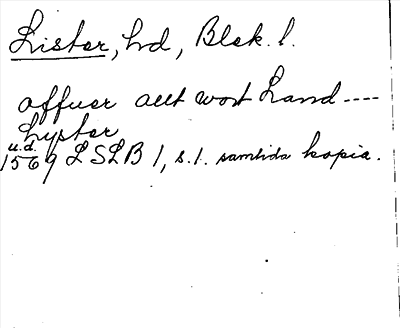 Lister, hd, Blek. l.
offuer allt wort Land ----
Lyster
u.d.
1569 LSLB 1, s. 1. samtida kopia.